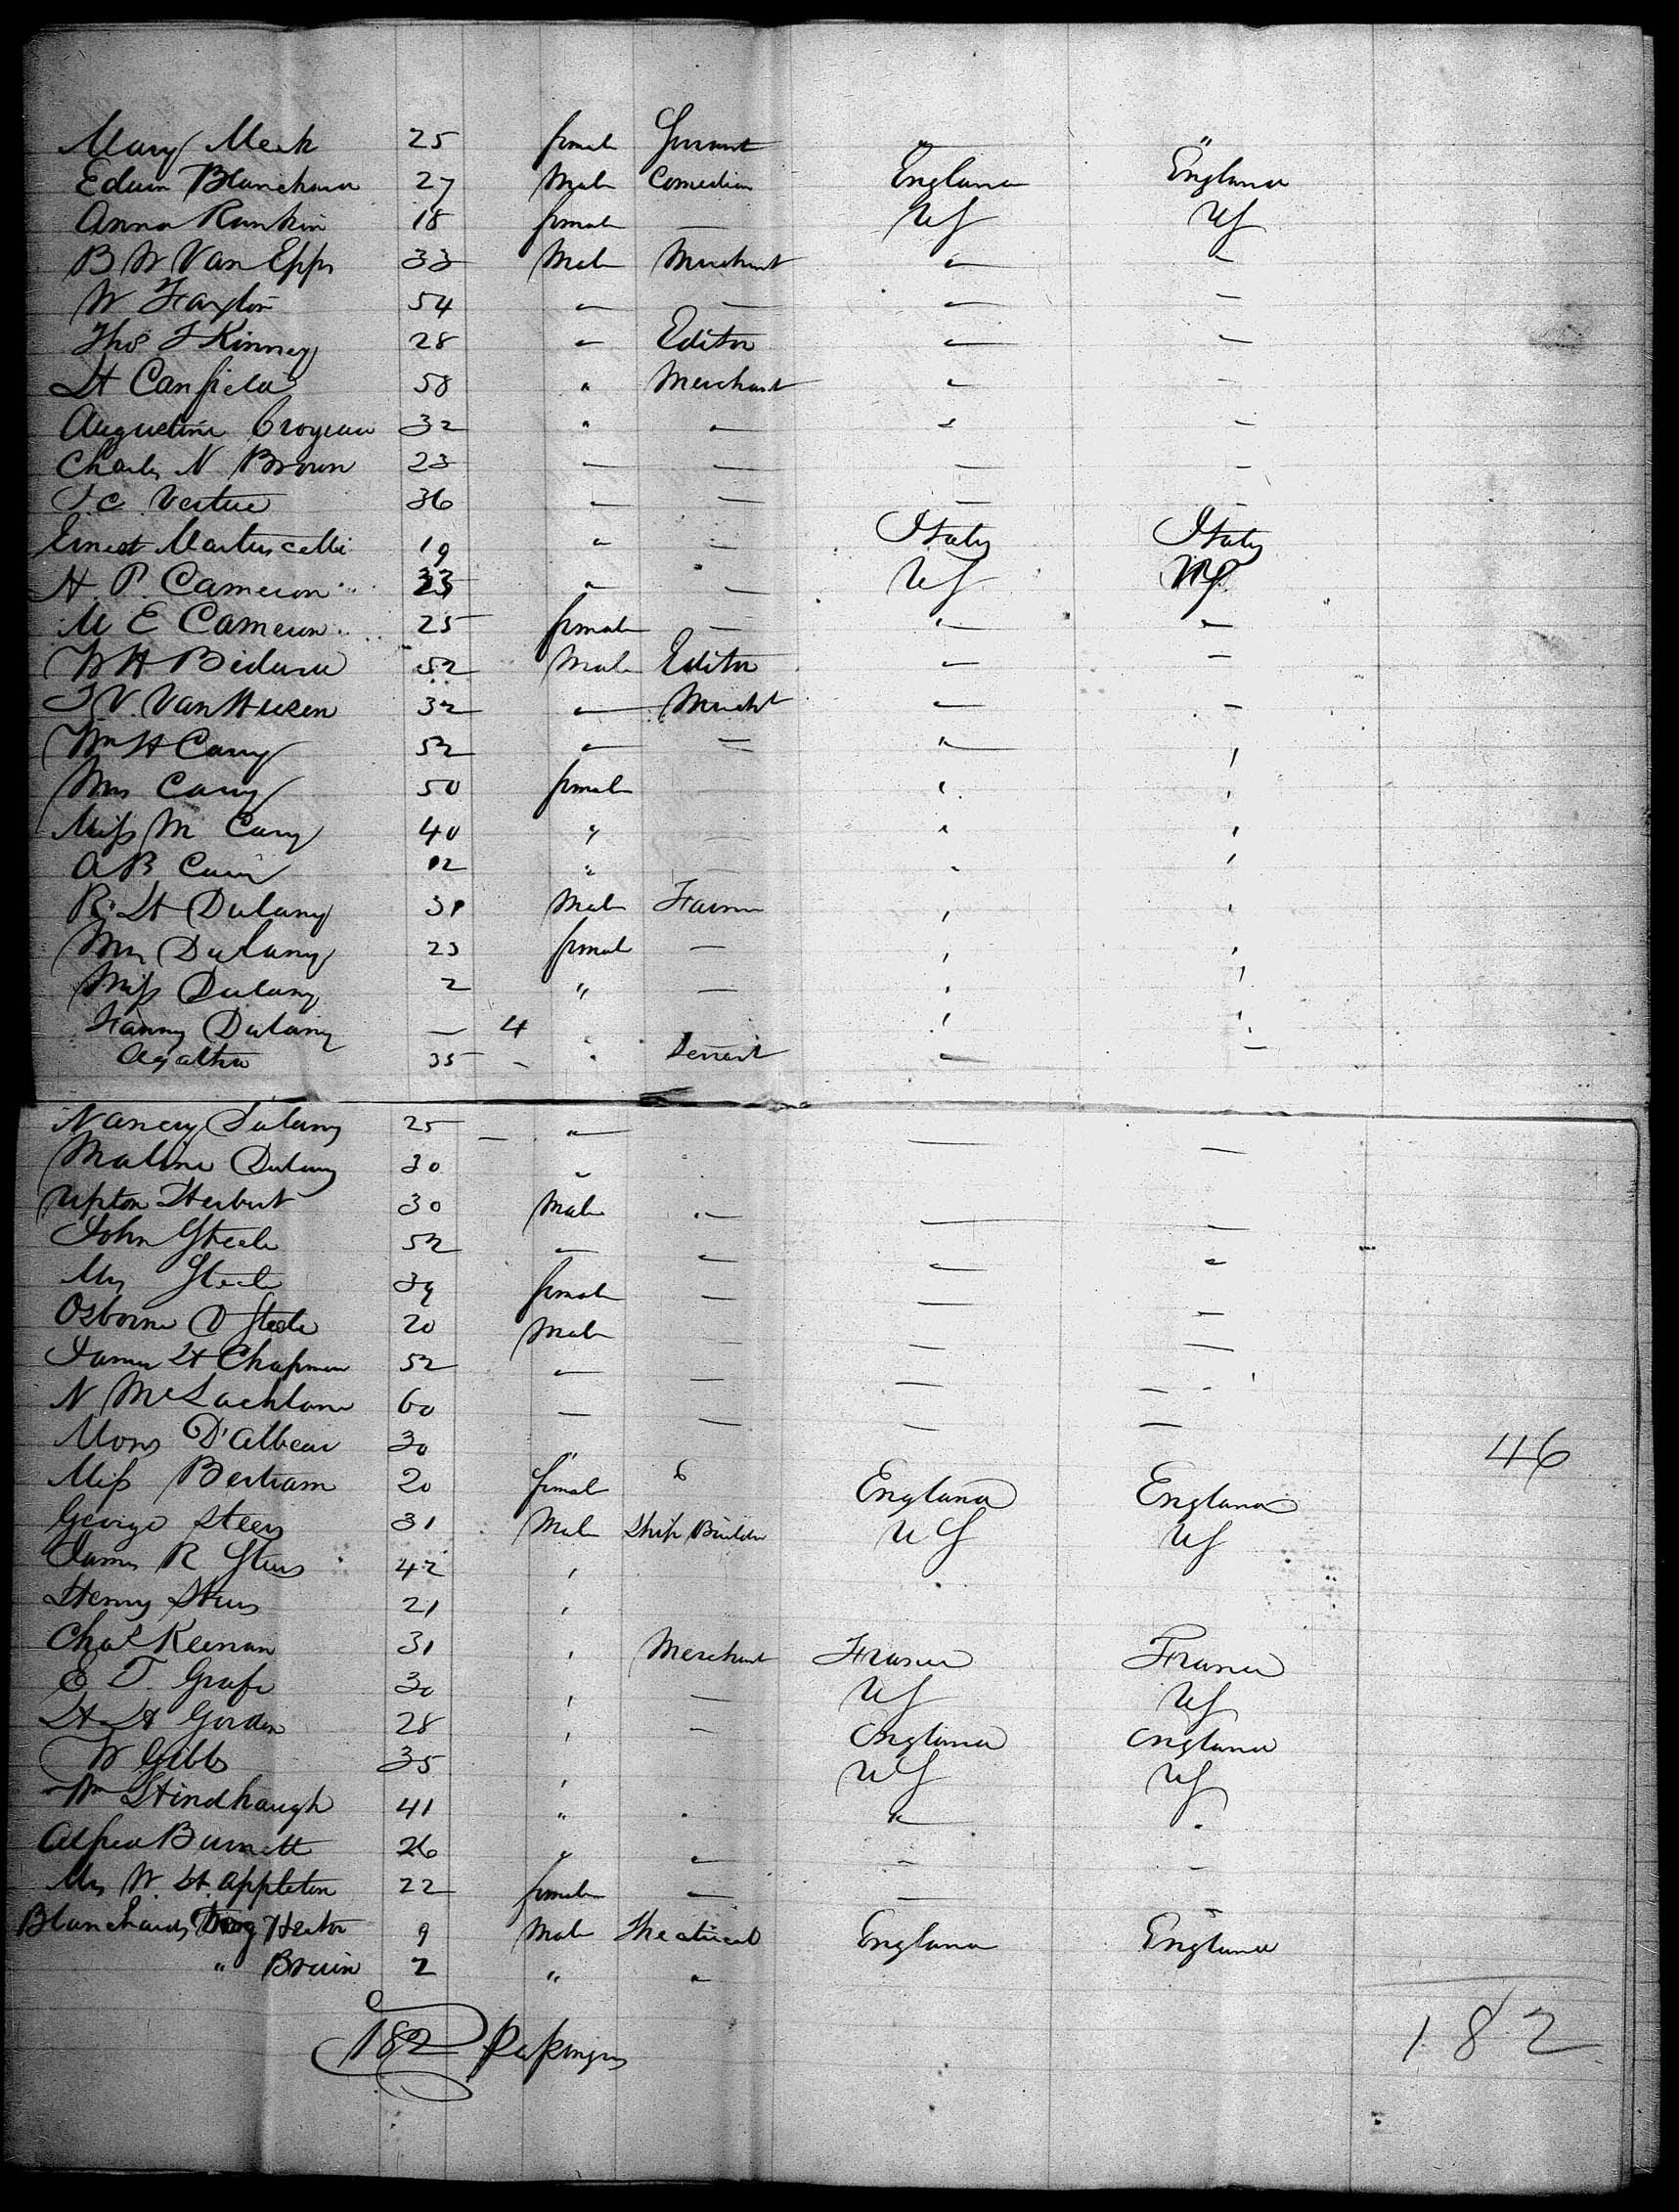 Mary Meek 25 female Servant " "
Edwin Blanchard 27 Male Comedian England England
Anna Rankin 18 female — US US
B W Van Epps 33 Male Merchant " "
W Faxton 54 " — " —
Thos T Kinney 28 " Editor " "
H Canfield 58 " Merchant " "
Augustine 32 " " " "
Charles N Brown 23 — — — —
T. C. Vertue 36 — — — —
Ernest Martuscelli 19 " — Italy Italy
H. P. Cameron 33 " — US US
M E Cameron 25 female — " "
W H Bidwell 52 Male Editor " —
T V. Van Husen 32 " Mercht " "
Wm H Cary 52 " " " "
Mrs Cary 50 female " "
Miss M Cary 40 " — " "
A B Cary 12 " — " "
R. H Dulany 31 Male Farmer " "
Mrs Dulany 23 female — " "
Miss Dulany 2 " — " "
Fanny Dulany — 4 " " "
Agatha 35 — " Servant " —
Nancy Dulany 25 — " — —
Malina Dulany 30 "
Upton Herbert 30 Male — — —
John Steele 52 — " " "
Mrs Steele 39 female — — —
Osborne D Steele 20 Male — — —
James H Chapman 52 — — — —
N McLachlane 60 — — — —
Mons D'Albear 30 "
46
Miss Bertram 20 female " England England
George Steers 31 Male Ship Builder US US
James R Steers 42 "
Henry Steers 21 "
Chas Keenan 31 " Merchant France France
E T. Grafe 30 " — US US
H H Gordon 28 " — England England
W Gibbs 35 " US US
Wm Hindhaugh 41 " " " "
Alfred Burnett 26 " " — —
Mrs W. H. Appleton 22 female — —
Blanchards Dog Hector 9 Male Theatrical England England
" Bruin 2 " "
182 Passengers
182